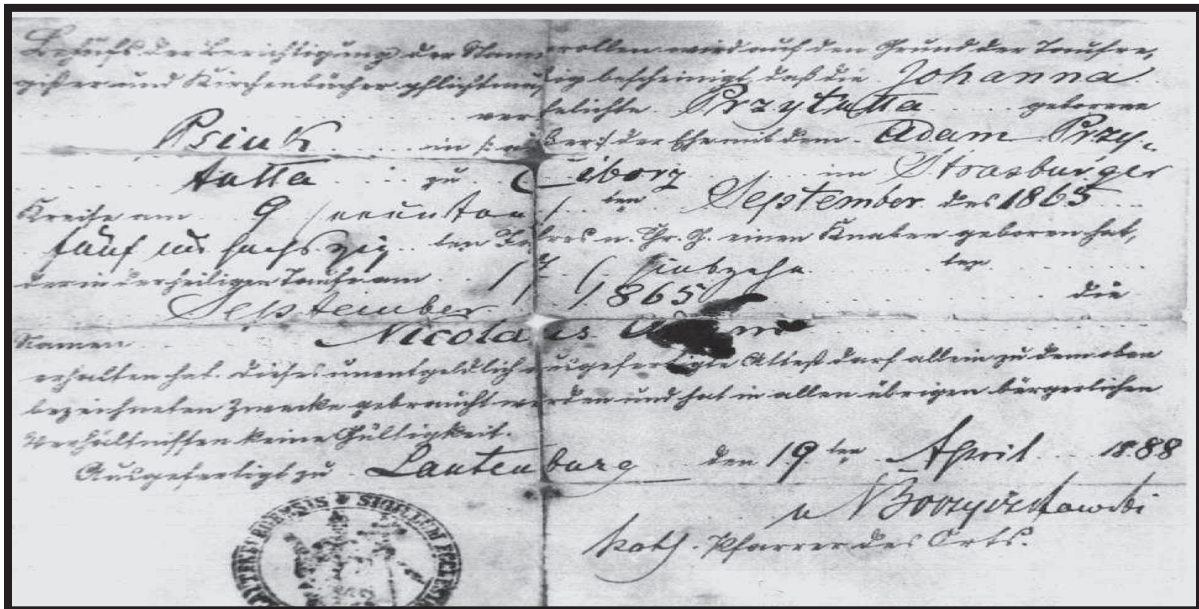 Behufs der Berichtigung der Stammrollen wird auf den Grund der Taufre-
gister und Kirchenbücher pflichtmäßig bescheinigt, daß die Johanna
verehelichte Przytulla geborene
Psiuk in der Ehe mit dem Adam Przy-
tulla zu Ciborz im Strasburger
Kreise am 9 / neunten / ten September des 1865
fünf und sechszig ten Jahres n. Chr. G. einen Knaben geboren hat,
der in der heiligen Taufe am 17 / siebzehn ten
September 1865 die
Namen Nicolaus
erhalten hat. Dieses unentgeldlich ausgefertigte Attest darf allein zu dem oben
bezeichneten Zwecke gebraucht werden und hat in allen übrigen bürgerlichen
Verhältnissen keine Gültigkeit.
Ausgefertigt zu Lautenburg den 19 ten April 1888
Kath. Pfarrer des Orts.
SIGILLUM